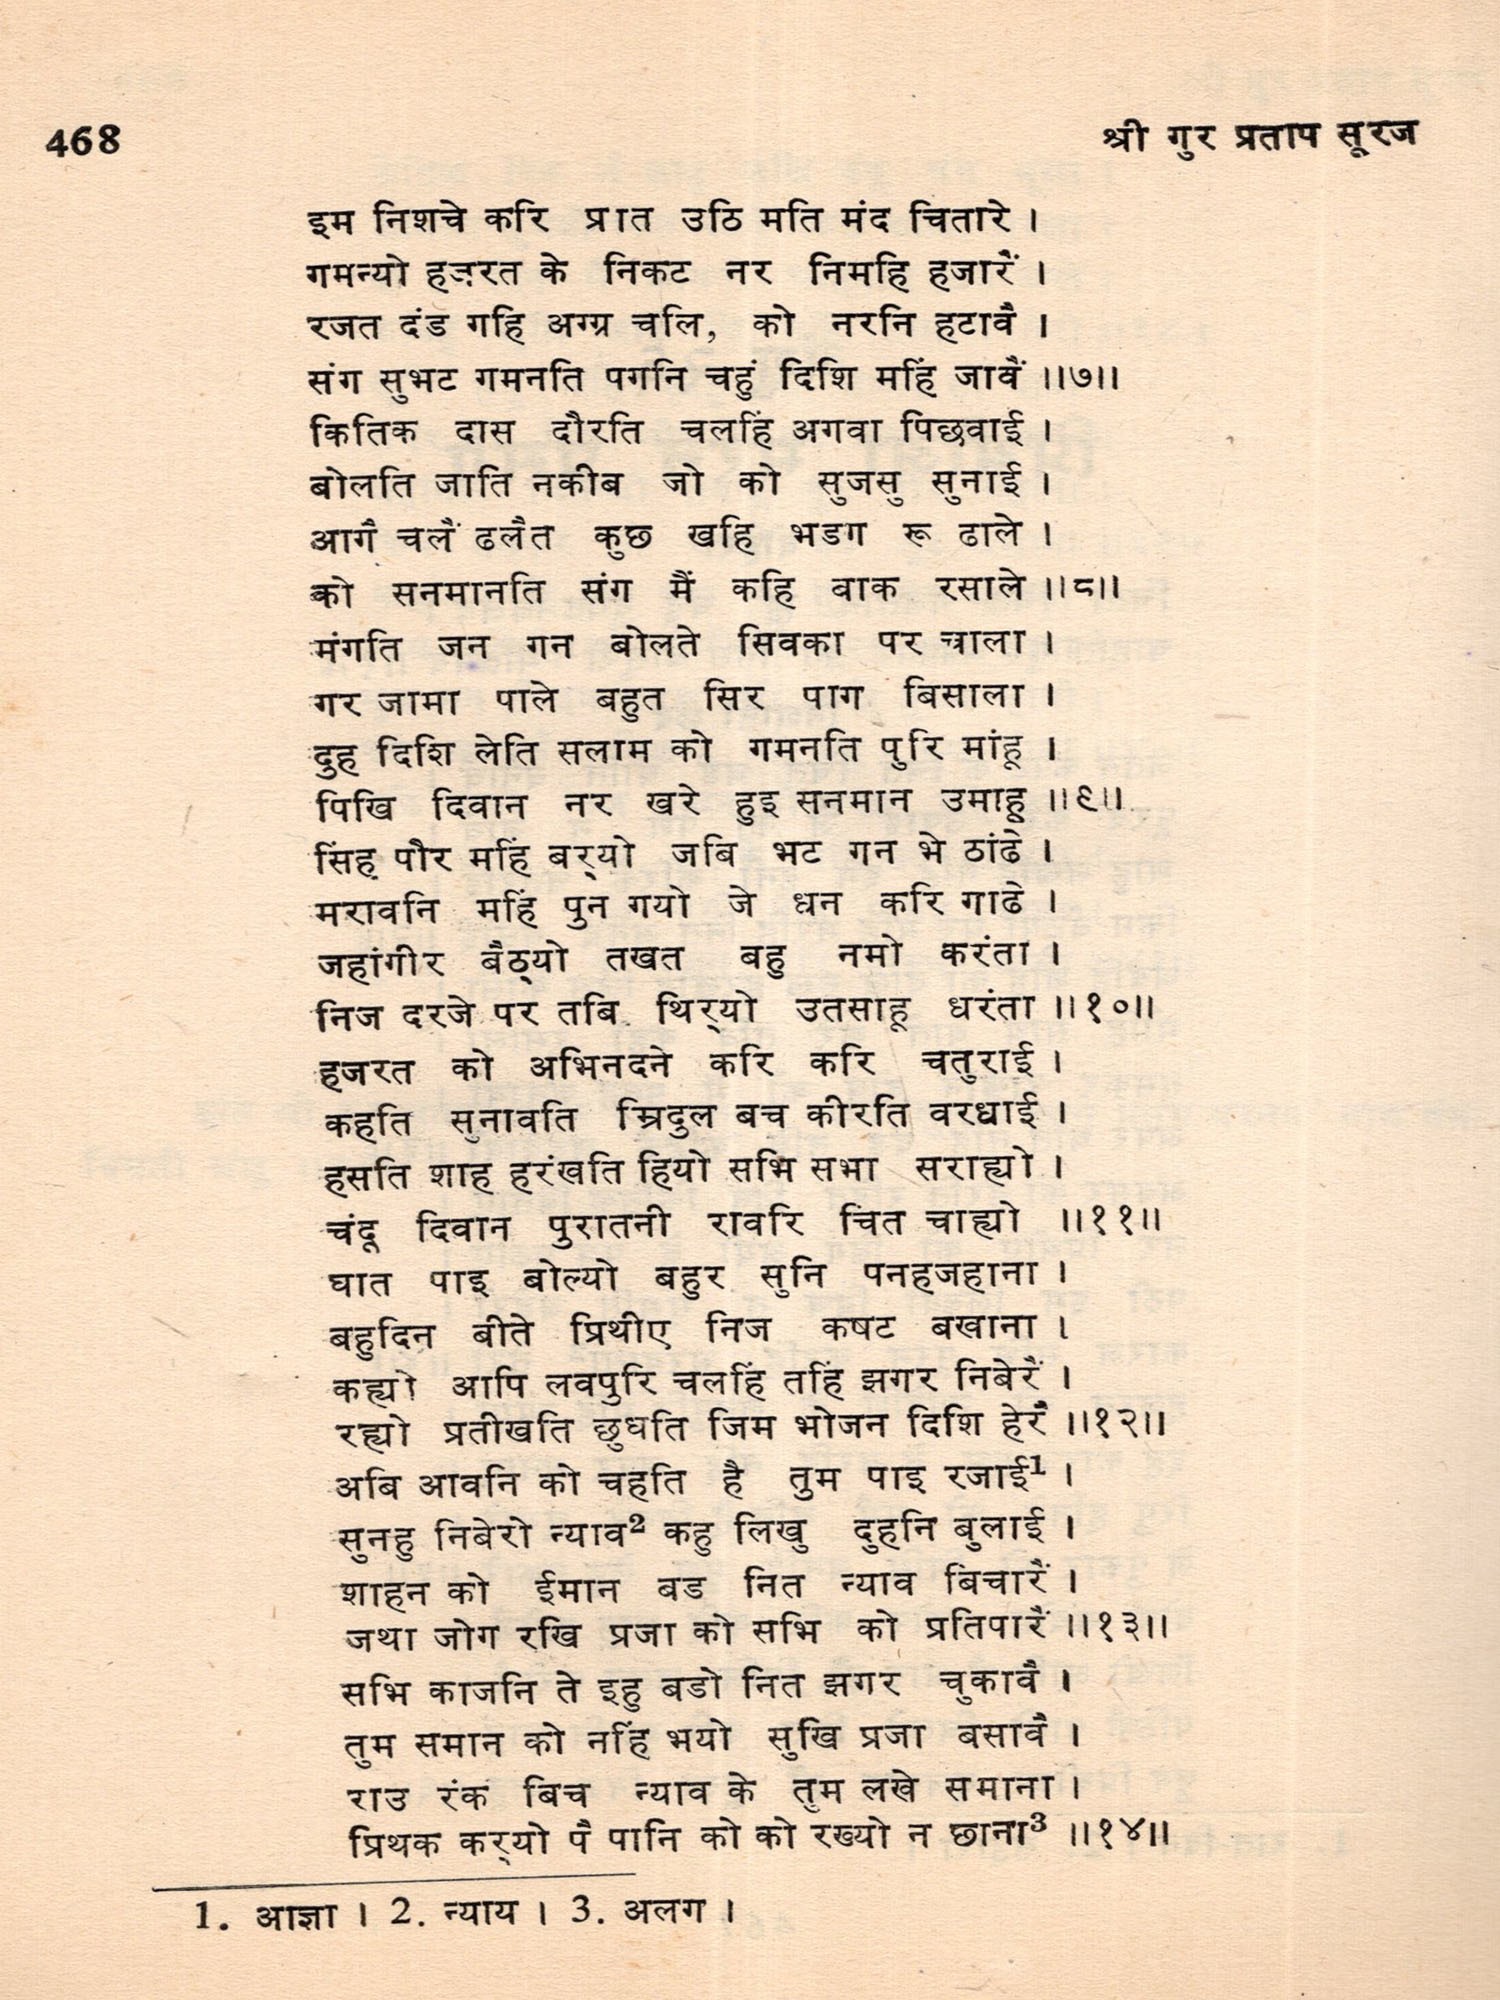 468
श्री गुर प्रताप सूरज
इम निशचे करि प्रात उठि मति मंद चितारे ।
गमन्यो हज़रत के निकट नर निमहि हजारैं ।
रजत दंड गहि अग्ग्र चलि, को नरनि हटावैं ।
संग सुभट गमनति पगनि चहुं दिशि महिं जावैं ॥७॥
कितिक दास दौरति चलहिं अगवा पिछवाई ।
बोलति जाति नकीब जो को सुजसु सुनाई ।
आगैं चलैं ढलैत कुछ खहि भडग रू ढाले ।
को सनमानति संग मैं कहि वाक रसाले ॥८॥
मंगति जन गन बोलते सिवका पर चाला ।
गर जामा पाले बहुत सिर पाग बिसाला ।
दुह दिशि लेति सलाम को गमनति पुरि मांहू ।
पिखि दिवान नर खरे हुइ सनमान उमाहू ॥९॥
सिंह पौर महिं बर्‌यो जबि भट गन भे ठांढे ।
मरावनि महिं पुन गयो जे धन करि गाढे ।
जहांगीर बैठ्यो तखत बहु नमो करंता ।
निज दरजे पर तबि थिर्‌यो उतसाहू धरंता ॥१०॥
हजरत को अभिनदने करि करि चतुराई ।
कहति सुनावति म्रिदुल बच कीरति वरधाई ।
हसति शाह हरंखति हियो सभि सभा सराह्यो ।
चंदू दिवान पुरातनी रावरि चित चाह्यो ॥११॥
घात पाइ बोल्यो बहुर सुनि पनहजहाना ।
बहुदिन बीते प्रिथीए निज कषट बखाना ।
कह्यो आपि लवपुरि चलहिं तहिं झगर निबेरैं ।
रह्यो प्रतीखति छुधति जिम भोजन दिशि हेरैं ॥१२॥
अबि आवनि को चहति है तुम पाइ रजाई1 ।
सुनहु निबेरो न्याव2 कहु लिखु दुहनि बुलाई ।
शाहन को ईमान बड नित न्याव बिचारैं ।
जथा जोग रखि प्रजा को सभि को प्रतिपारैं ॥१३॥
सभि काजनि ते इहु बडो नित झगर चुकावैं ।
तुम समान को नहिं भयो सुखि प्रजा बसावैं ।
राउ रंक बिच न्याव के तुम लखे समाना ।
प्रिथक कर्‌यो पै पानि को को रख्यो न छाना3 ॥१४॥
1. आज्ञा । 2. न्याय । 3. अलग ।